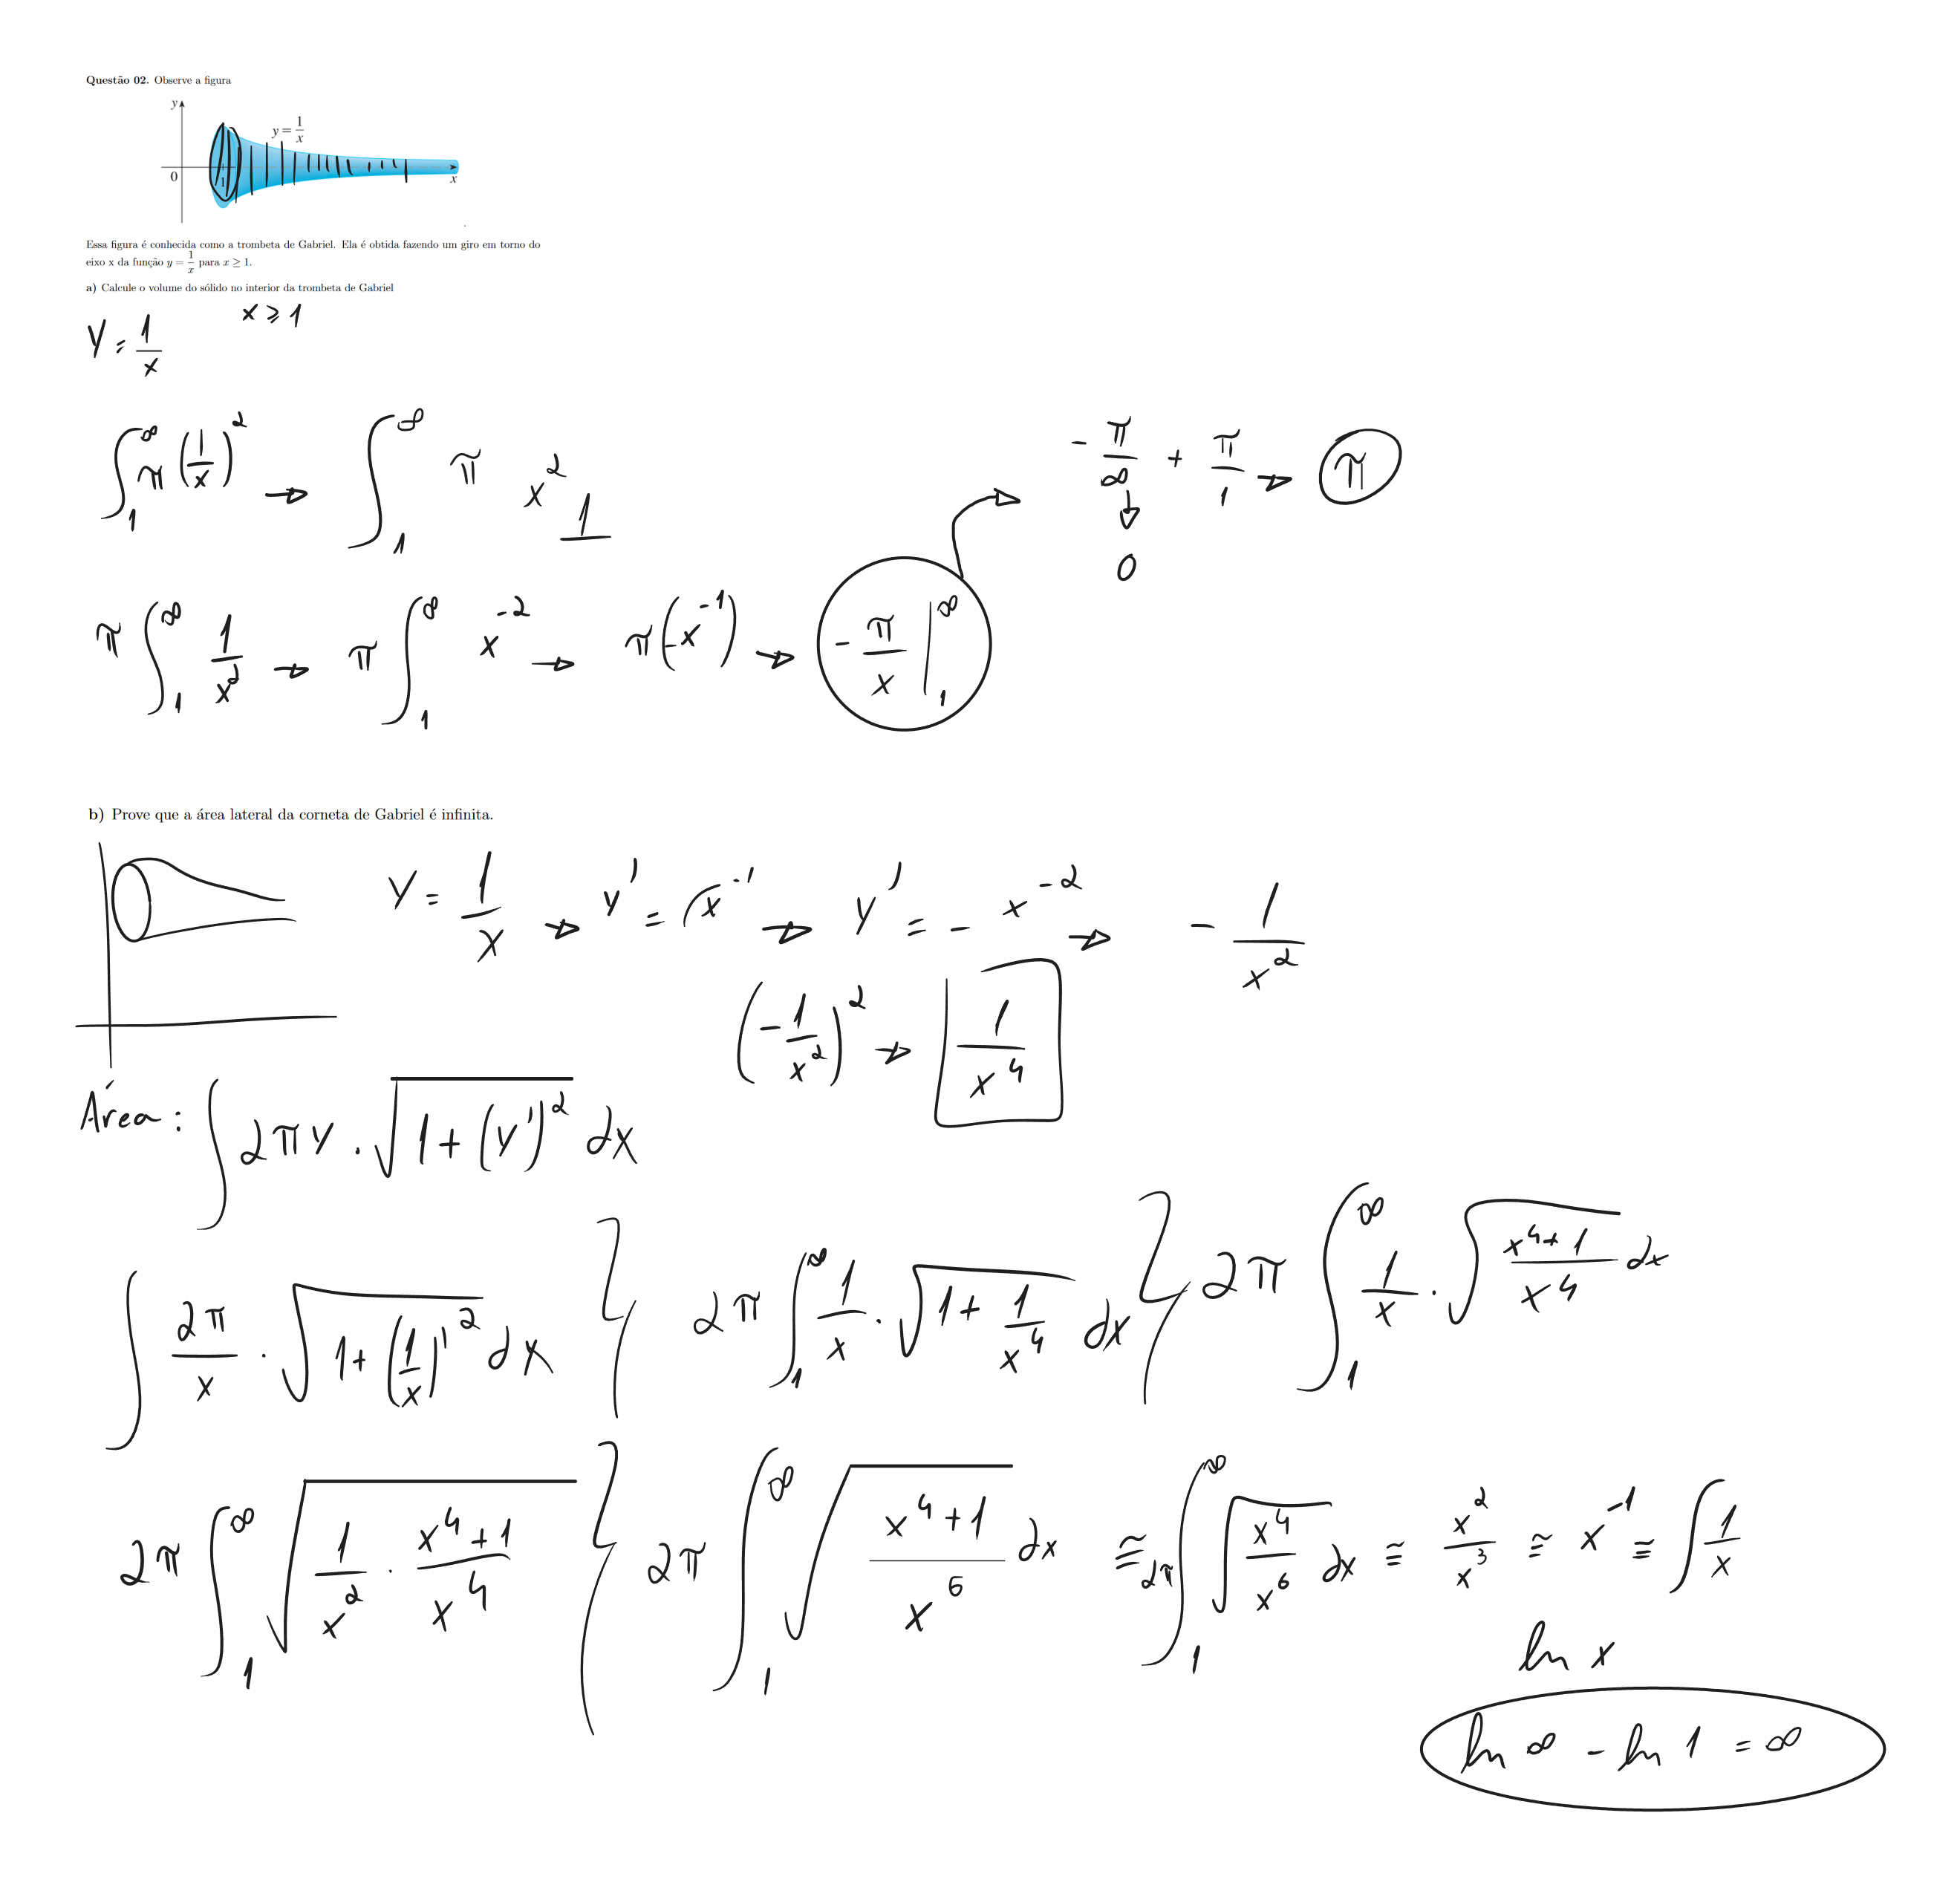 Questão 02. Observe a figura
y
y = 1/x
0
1
x
Essa figura é conhecida como a trombeta de Gabriel. Ela é obtida fazendo um giro em torno do
eixo x da função y = 1/x para x ≥ 1.
a) Calcule o volume do sólido no interior da trombeta de Gabriel
y = 1/x    x ≥ 1
∫_1^∞ π (1/x)^2 → ∫_1^∞ π x^2 1
-π/∞ + π/1 → π
↓
0
π ∫_1^∞ 1/x^2 → π ∫_1^∞ x^-2 → π(-x^-1) → -π/x |_1^∞
b) Prove que a área lateral da corneta de Gabriel é infinita.
y = 1/x → y' = (x^-1 → y' = - x^-2 → - 1/x^2
(-1/x^2)^2 → 1/x^4
Área: ∫ 2πy · √(1+(y')^2) dx
∫ 2π/x · √(1+((1/x)')^2) dx    2π ∫_1^∞ 1/x · √(1+1/x^4) dx    2π ∫_1^∞ 1/x · √((x^4+1)/x^4) dx
2π ∫_1^∞ √(1/x^2 · (x^4+1)/x^4)    2π ∫_1^∞ √((x^4+1)/x^6) dx ≅ 2π ∫_1^∞ √(x^4/x^6) dx ≅ x^2/x^3 ≅ x^-1 ≅ ∫ 1/x
ln x
ln ∞ - ln 1 = ∞